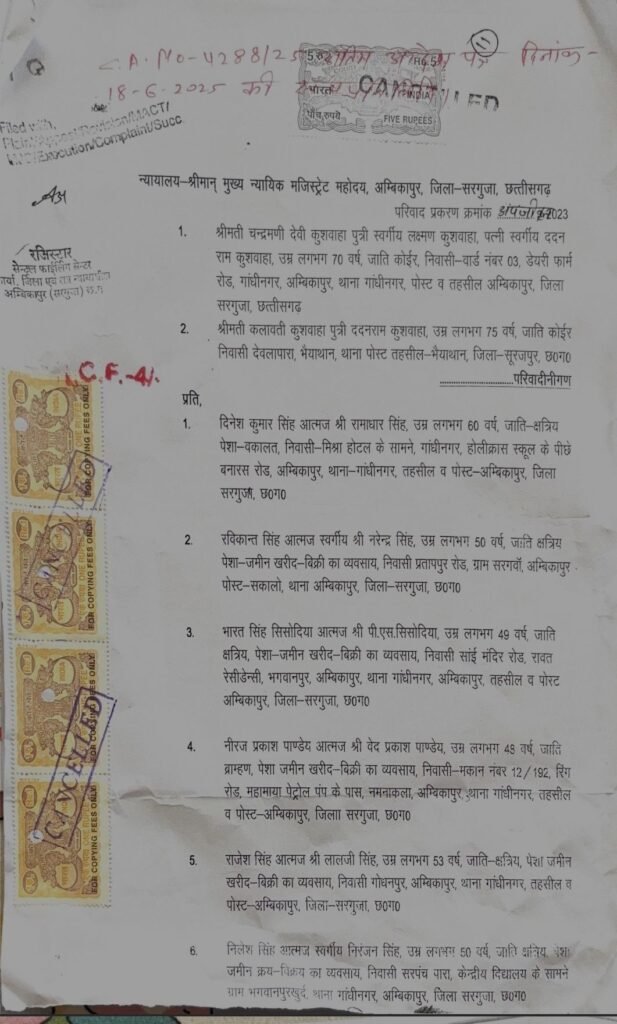 C.A. No-4288/25 दिनांक-
18-6-2025 की
(11)
5 रु. Rs.5
भारत INDIA
पाँच रुपये FIVE RUPEES
CANCELLED
Filed with,
Plaint/Appeal/Revision/MACT/
Execution/Complaint/Succ
रजिस्टार
सेन्ट्रल फाईलिंग सेन्टर
जिला एवं सत्र न्यायाधीश
अम्बिकापुर (सरगुजा) छ.ग.
न्यायालय–श्रीमान् मुख्य न्यायिक मजिस्ट्रेट महोदय, अम्बिकापुर, जिला–सरगुजा, छत्तीसगढ़
परिवाद प्रकरण क्रमांक अपंजीकृत/2023
1. श्रीमती चन्द्रमणी देवी कुशवाहा पुत्री स्वर्गीय लक्ष्मण कुशवाहा, पत्नी स्वर्गीय ददन
राम कुशवाहा, उम्र लगभग 70 वर्ष, जाति कोईर, निवासी–वार्ड नंबर 03, डेयरी फार्म
रोड, गांधीनगर, अम्बिकापुर, थाना गांधीनगर, पोस्ट व तहसील अम्बिकापुर, जिला
सरगुजा, छत्तीसगढ़
2. श्रीमती कलावती कुशवाहा पुत्री ददनराम कुशवाहा, उम्र लगभग 75 वर्ष, जाति कोईर
निवासी देवलापारा, भैयाथान, थाना पोस्ट तहसील–भैयाथान, जिला–सूरजपुर, छ0ग0
..............................परिवादीनीगण
C.F.-4/-
प्रति,
1. दिनेश कुमार सिंह आत्मज श्री रामाधार सिंह, उम्र लगभग 60 वर्ष, जाति–क्षत्रिय
पेशा–वकालत, निवासी–मिश्रा होटल के सामने, गांधीनगर, होलीक्रास स्कूल के पीछे
बनारस रोड, अम्बिकापुर, थाना–गांधीनगर, तहसील व पोस्ट–अम्बिकापुर, जिला
सरगुजा, छ0ग0
2. रविकान्त सिंह आत्मज स्वर्गीय श्री नरेन्द्र सिंह, उम्र लगभग 50 वर्ष, जाति क्षत्रिय
पेशा–जमीन खरीद–बिक्री का व्यवसाय, निवासी प्रतापपुर रोड, ग्राम सरगवॉ, अम्बिकापुर
पोस्ट–सकालो, थाना अम्बिकापुर, जिला–सरगुजा, छ0ग0
3. भारत सिंह सिसोदिया आत्मज श्री पी.एस.सिसोदिया, उम्र लगभग 49 वर्ष, जाति
क्षत्रिय, पेशा–जमीन खरीद–बिक्री का व्यवसाय, निवासी सांई मंदिर रोड, रावत
रेसीडेन्सी, भगवानपुर, अम्बिकापुर, थाना गांधीनगर, अम्बिकापुर, तहसील व पोस्ट
अम्बिकापुर, जिला–सरगुजा, छ0ग0
4. नीरज प्रकाश पाण्डेय आत्मज श्री वेद प्रकाश पाण्डेय, उम्र लगभग 48 वर्ष, जाति
ब्राम्हण, पेशा जमीन खरीद–बिक्री का व्यवसाय, निवासी–मकान नंबर 12/192, रिंग
रोड, महामाया पेट्रोल पंप के पास, नमनाकला, अम्बिकापुर, थाना गांधीनगर, तहसील
व पोस्ट–अम्बिकापुर, जिलाा सरगुजा, छ0ग0
5. राजेश सिंह आत्मज श्री लालजी सिंह, उम्र लगभग 53 वर्ष, जाति–क्षत्रिय, पेशा जमीन
खरीद–बिक्री का व्यवसाय, निवासी गोधनपुर, अम्बिकापुर, थाना गांधीनगर, तहसील व
पोस्ट–अम्बिकापुर, जिला–सरगुजा, छ0ग0
6. निलेश सिंह आत्मज स्वर्गीय निरंजन सिंह, उम्र लगभग 50 वर्ष, जाति क्षत्रिय, पेशा
जमीन क्रय–विक्रय का व्यवसाय, निवासी सरपंच पारा, केन्द्रीय विद्यालय के सामने
ग्राम भगवानपुरखुर्द, थाना गांधीनगर, अम्बिकापुर, जिला सरगुजा, छ0ग0
FOR COPYING FEES ONLY
FOR COPYING FEES ONLY
FOR COPYING FEES ONLY
FOR COPYING FEES ONLY
CANCELLED
CANCELLED